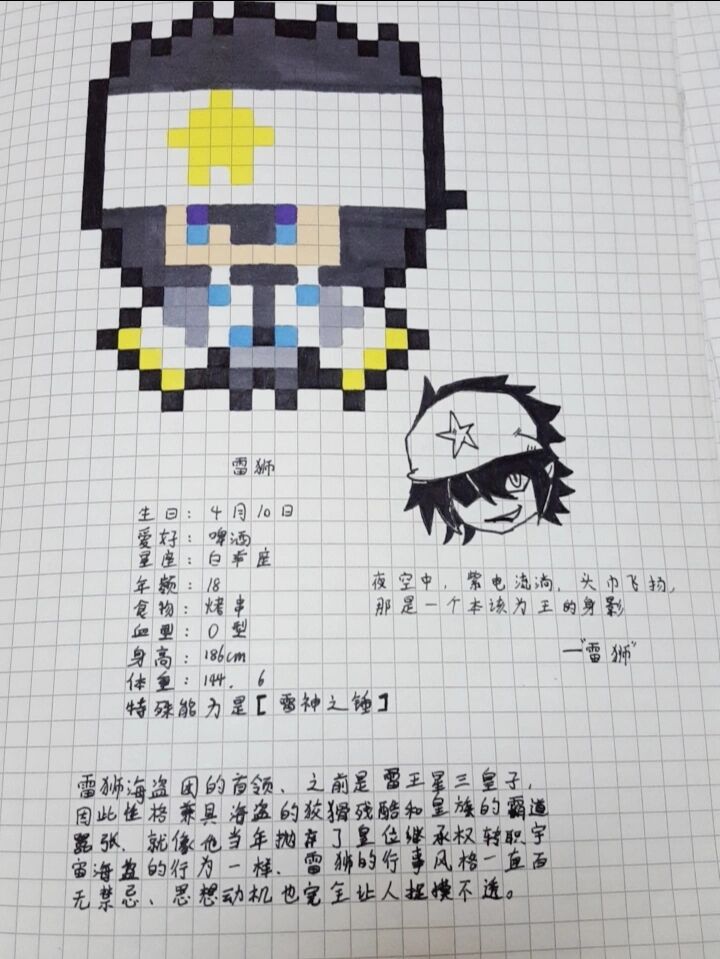 雷狮
生日：4月10日
爱好：啤酒
星座：白羊座
年龄：18
食物：烤串
血型：O型
身高：186cm
体重：144.6
特殊能为是［雷神之锤］
夜空中，紫电流淌，头巾飞扬，
那是一个本该为王的身影
—“雷狮”
雷狮海盗团的首领、之前是雷王星三皇子，
因此性格兼具海盗的狡猾残酷和皇族的霸道
嚣张、就像他当年抛弃了皇位继承权转职宇
宙海盗的行为一样、雷狮的行事风格一直百
无禁忌、思想动机也完全让人捉摸不透。